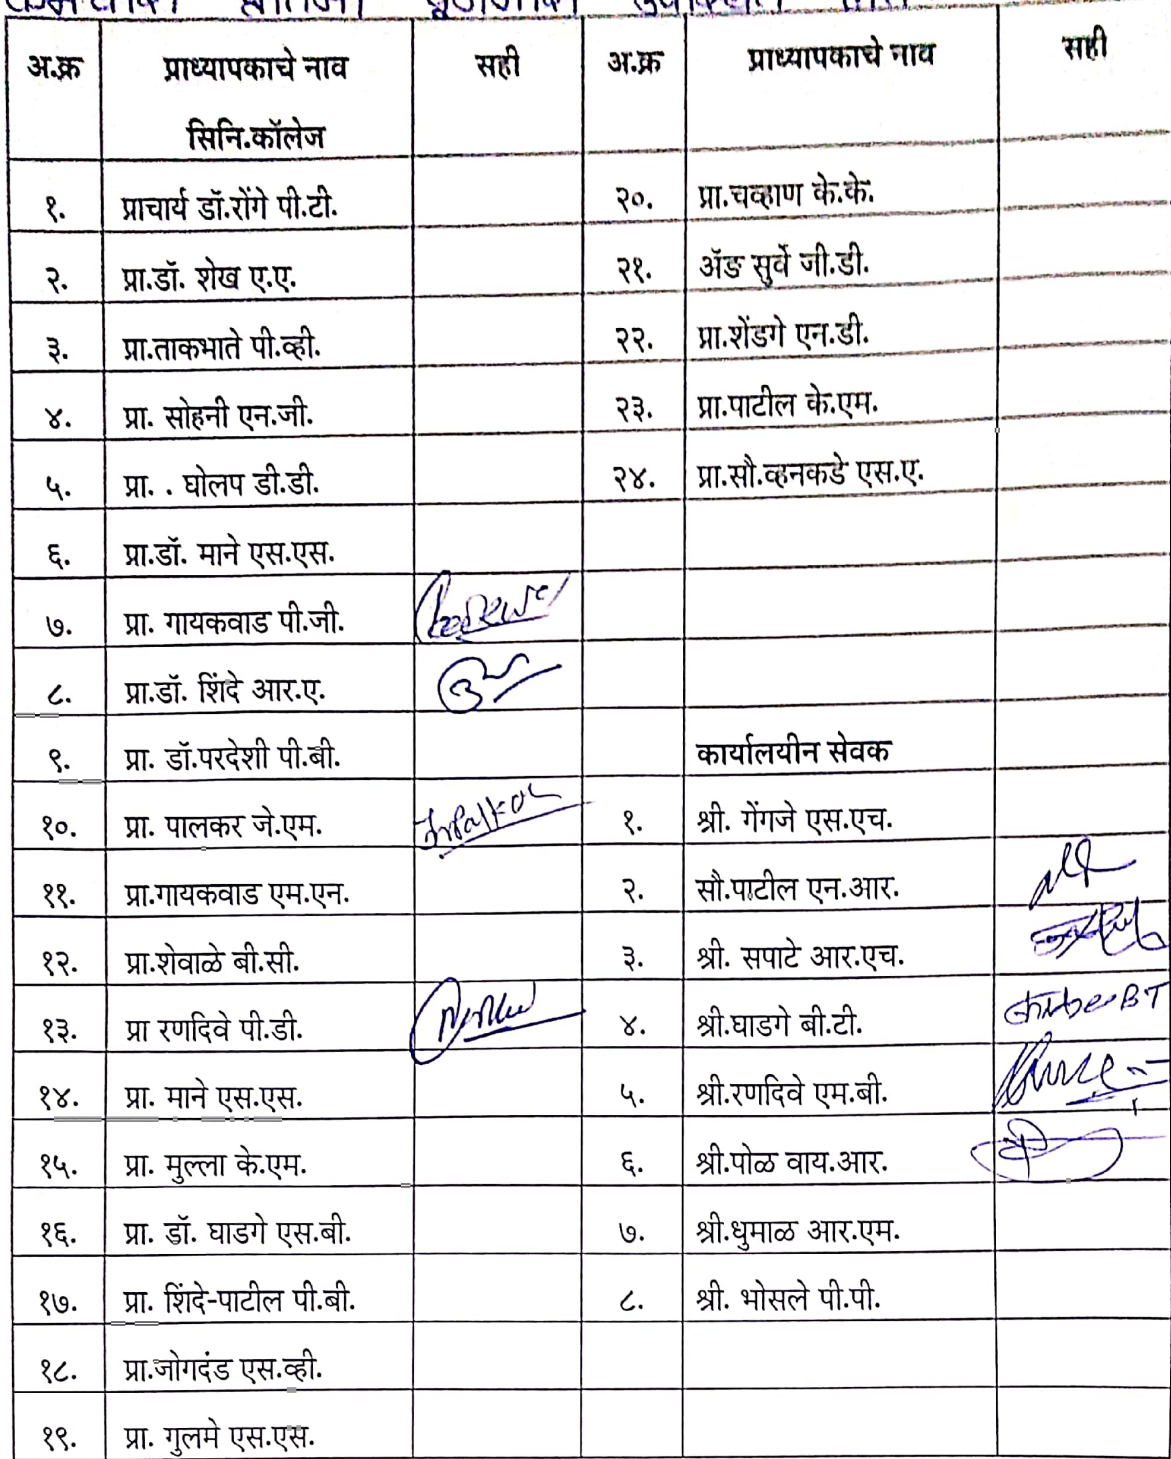 अ.क्र प्राध्यापकाचे नाव सही अ.क्र प्राध्यापकाचे नाव सही
सिनि.कॉलेज
१. प्राचार्य डॉ.रोंगे पी.टी. २०. प्रा.चव्हाण के.के.
२. प्रा.डॉ. शेख ए.ए. २१. ॲड सुर्वे जी.डी.
३. प्रा.ताकभाते पी.व्ही. २२. प्रा.शेंडगे एन.डी.
४. प्रा. सोहनी एन.जी. २३. प्रा.पाटील के.एम.
५. प्रा. . घोलप डी.डी. २४. प्रा.सौ.व्हनकडे एस.ए.
६. प्रा.डॉ. माने एस.एस.
७. प्रा. गायकवाड पी.जी.
८. प्रा.डॉ. शिंदे आर.ए.
९. प्रा. डॉ.परदेशी पी.बी. कार्यालयीन सेवक
१०. प्रा. पालकर जे.एम. १. श्री. गेंगजे एस.एच.
११. प्रा.गायकवाड एम.एन. २. सौ.पाटील एन.आर.
१२. प्रा.शेवाळे बी.सी. ३. श्री. सपाटे आर.एच.
१३. प्रा रणदिवे पी.डी. ४. श्री.घाडगे बी.टी.
१४. प्रा. माने एस.एस. ५. श्री.रणदिवे एम.बी.
१५. प्रा. मुल्ला के.एम. ६. श्री.पोळ वाय.आर.
१६. प्रा. डॉ. घाडगे एस.बी. ७. श्री.धुमाळ आर.एम.
१७. प्रा. शिंदे-पाटील पी.बी. ८. श्री. भोसले पी.पी.
१८. प्रा.जोगदंड एस.व्ही.
१९. प्रा. गुलमे एस.एस.